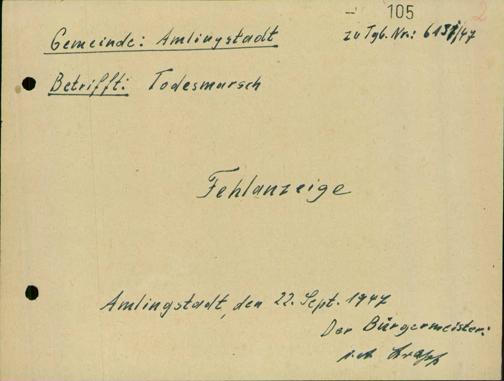 - 105 2
Gemeinde: Amlingstadt zu Tgb. Nr: 6131/47
Betrifft: Todesmarsch
Fehlanzeige
Amlingstadt, den 22. Sept. 1947
Der Bürgermeister: